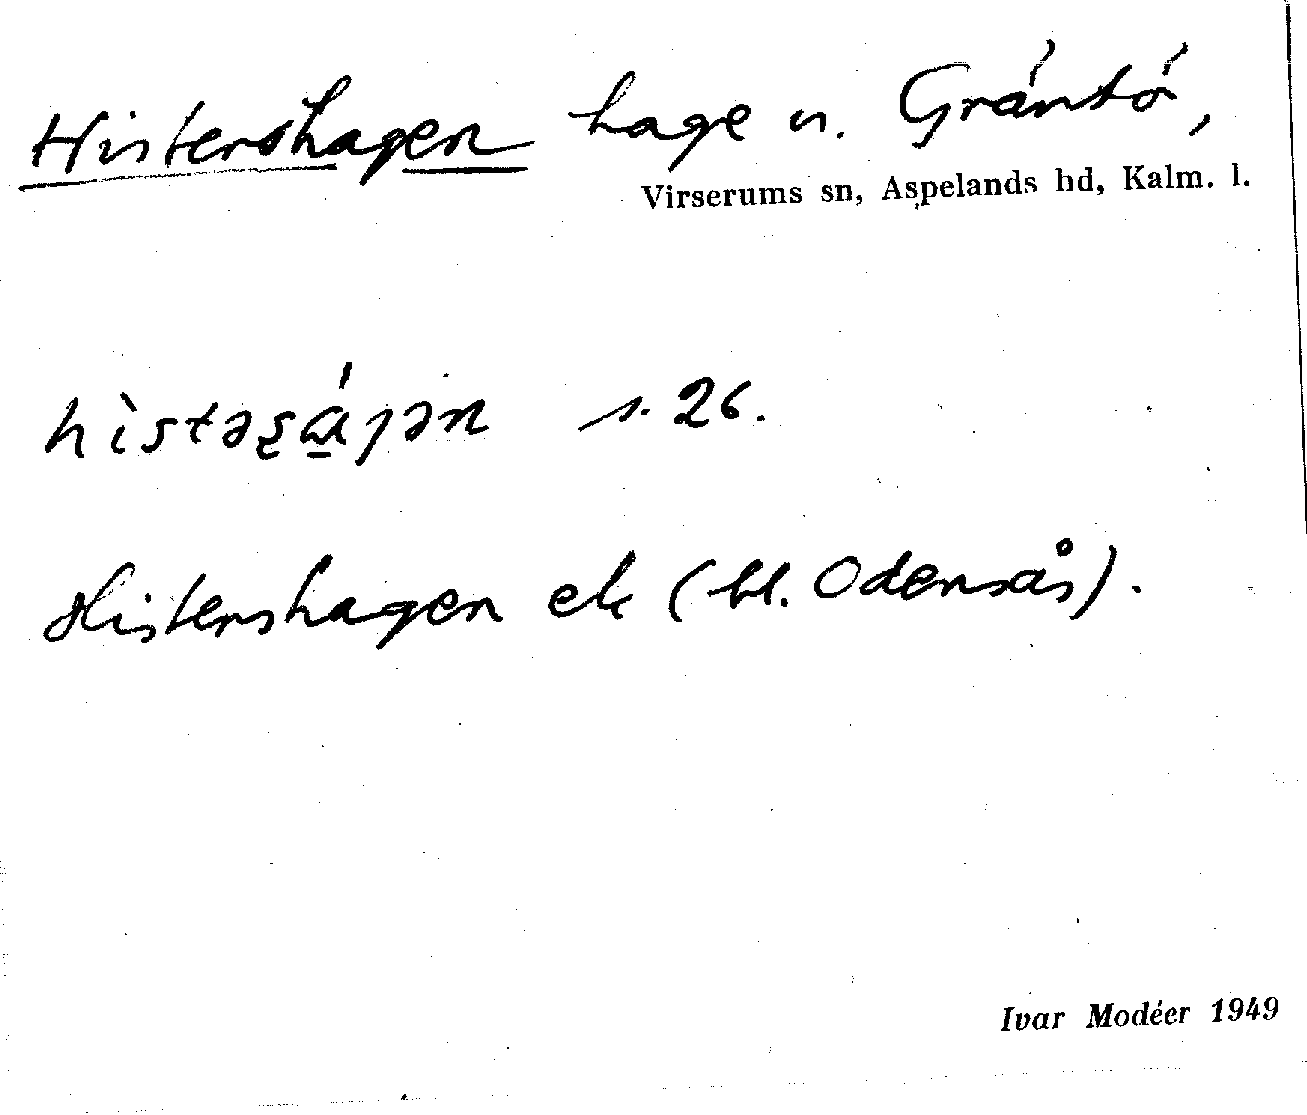 Histershagen hage u. Gräntö,
Virserums sn, Aspelands hd, Kalm. l.
s. 26.
Histershagen ek (bl. Odensås).
Ivar Modéer 1949